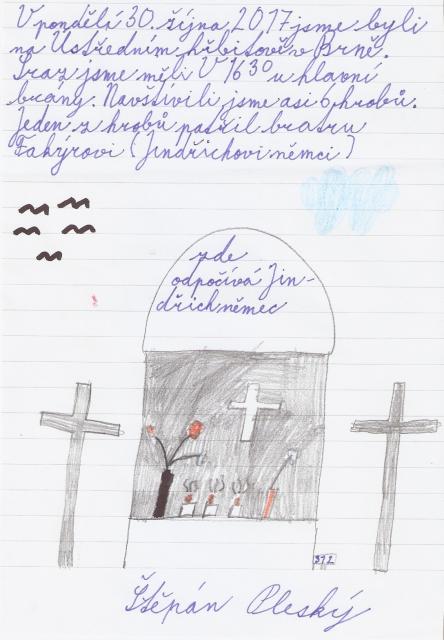 V pondělí 30. října 2017 jsme byli
na Ústředním hřbitově v Brně.
Sraz jsme měli V 16 30 u hlavní
brány. Navštívili jsme asi 6 hrobů.
Jeden z hrobů patřil bratru
Fakýrovi (Jindřichovi němci)
zde
odpočívá Jin-
dřich němec
Štěpán Pleský